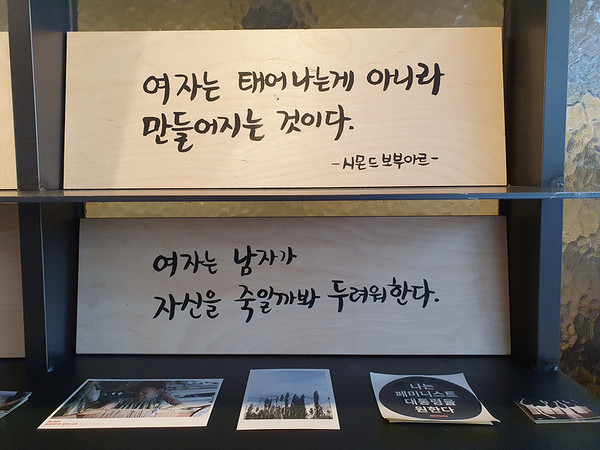 여자는 태어나는게 아니라
만들어지는 것이다.
-시몬드보부아르-
여자는 남자가
자신을 죽일까봐 두려워한다.
나는
페미니스트
대통령을
원한다